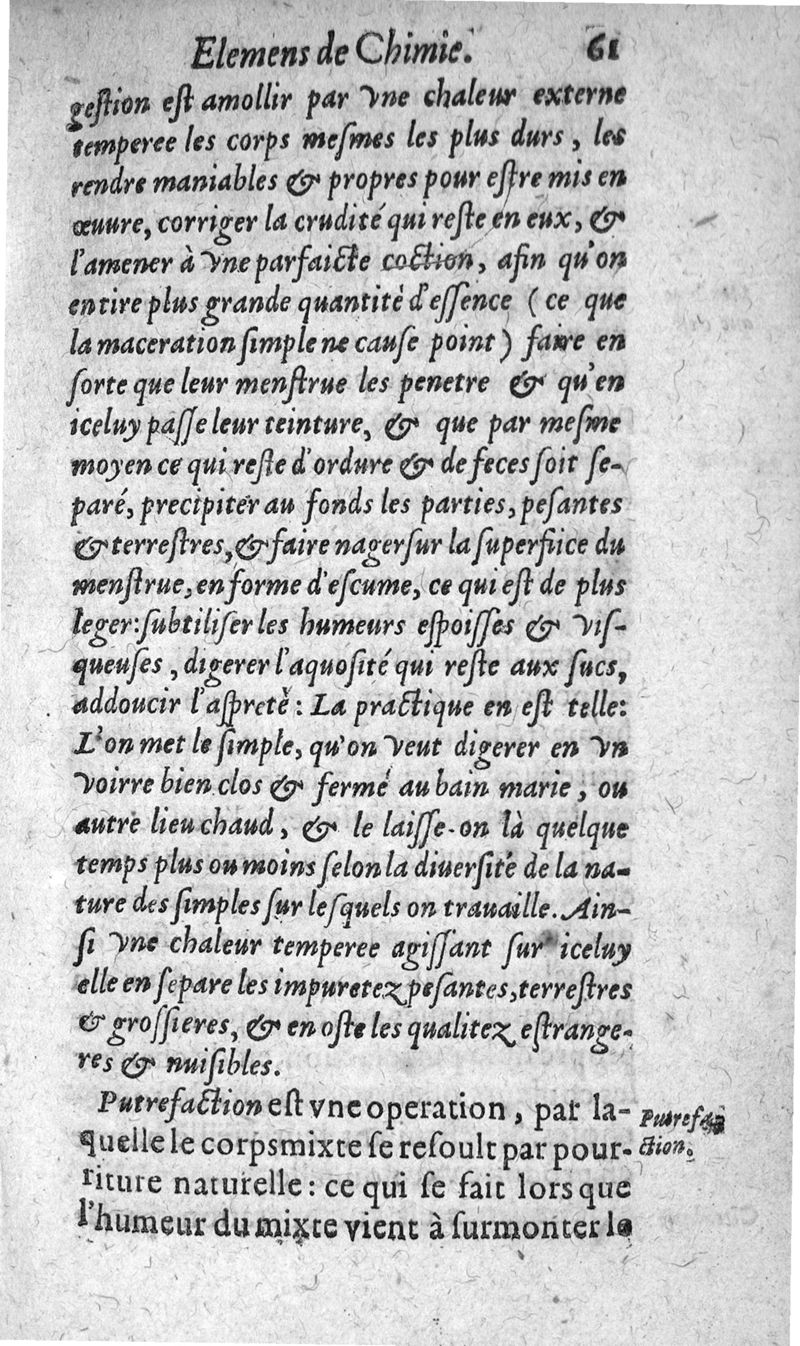 Elemens de Chimie. 61
gestion est amollir par vne chaleur externe
temperee les corps mesmes les plus durs, les
rendre maniables & propres pour estre mis en
œuure, corriger la crudité qui reste en eux, &
l'amener à vne parfaicte coction, afin qu'on
en tire plus grande quantité d'essence (ce que
la maceration simple ne cause point) faire en
sorte que leur menstrue les penetre & qu'en
iceluy passe leur teinture, & que par mesme
moyen ce qui reste d'ordure & de feces soit se-
paré, precipiter au fonds les parties, pesantes
& terrestres, & faire nager sur la superfiice du
menstrue, en forme d'escume, ce qui est de plus
leger: subtiliser les humeurs espoisses & vis-
queuses, digerer l'aquosité qui reste aux sucs,
addoucir l'aspreté: La practique en est telle:
L'on met le simple, qu'on veut digerer en vn
voirre bien clos & fermé au bain marie, ou
autre lieu chaud, & le laisse-on là quelque
temps plus ou moins selon la diuersité de la na-
ture des simples sur lesquels on trauaille. Ain-
si vne chaleur temperee agissant sur iceluy
elle en separe les impuretez pesantes, terrestres
& grossieres, & en oste les qualitez estrange-
res & nuisibles.
Putrefaction est vne operation, par la-
quelle le corps mixte se resoult par pour-
riture naturelle: ce qui se fait lors que
l'humeur du mixte vient à surmonter le
Putrefa-
ction.